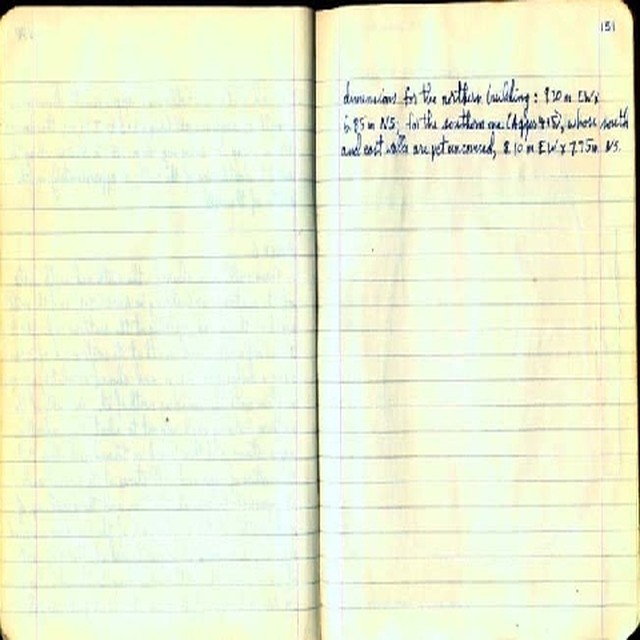 151
dimensions for the northern building: 8.20 m EW x
6.85 m NS; for the southern one (Agpa 415), whose south
and east walls are yet uncovered, 8.10 m EW x 7.75 m NS.